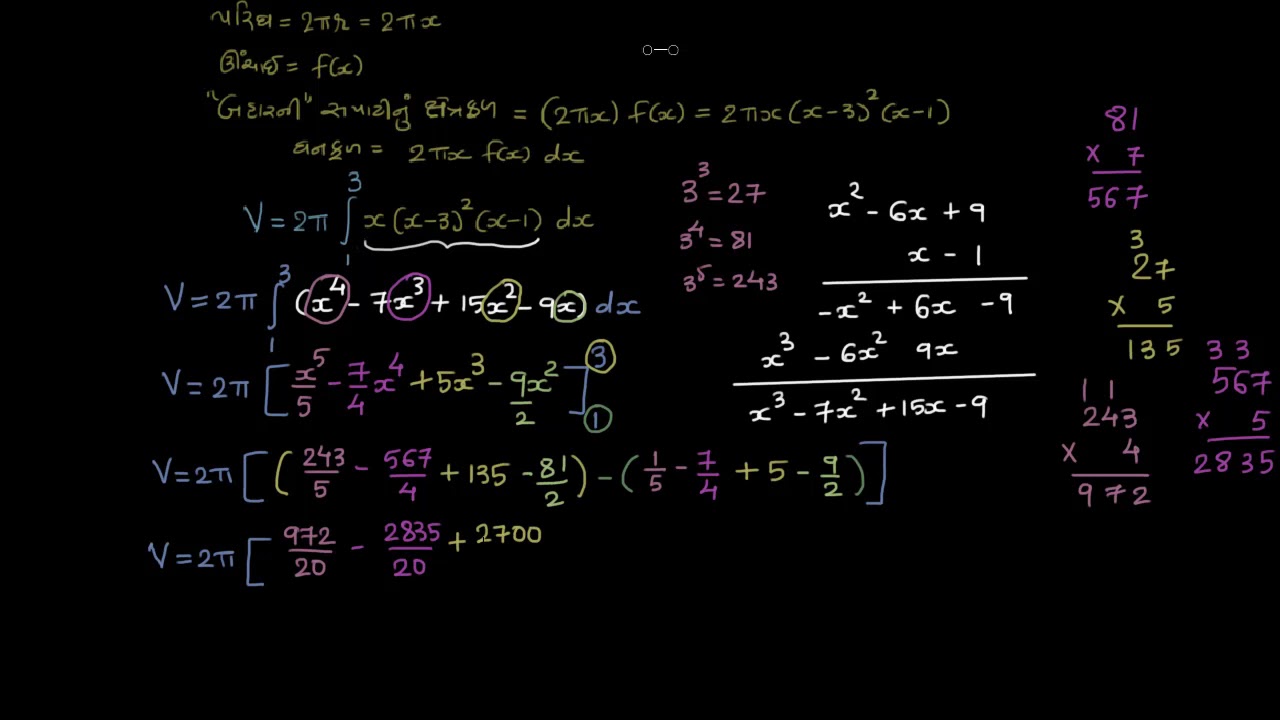 પરિઘ = 2πr = 2πx
ઊંચાઈ = f(x)
"બહારની" સપાટીનું ક્ષેત્રફળ = (2πx) f(x) = 2πx(x-3)²(x-1)
ઘનફળ = 2πx f(x) dx
V = 2π ∫₁³ x(x-3)²(x-1) dx
V = 2π ∫₁³ (x⁴ - 7x³ + 15x² - 9x) dx
V = 2π [x⁵/5 - 7/4 x⁴ + 5x³ - 9x²/2]₁³
V = 2π [(243/5 - 567/4 + 135 - 81/2) - (1/5 - 7/4 + 5 - 9/2)]
V = 2π [972/20 - 2835/20 + 2700
3³ = 27
3⁴ = 81
3⁵ = 243
x² - 6x + 9
x - 1
-x² + 6x - 9
x³ - 6x² 9x
x³ - 7x² + 15x - 9
81
x 7
567
3
27
x 5
135
1 1
243
x 4
972
3 3
567
x 5
2835